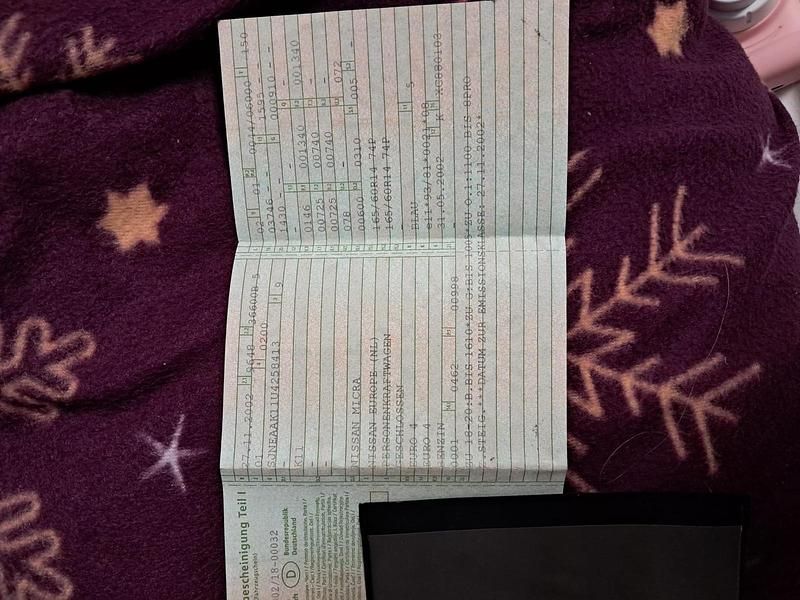 bescheinigung Teil I
(Fahrzeugschein)
02/18-00032
D Bundesrepublik
Deutschland
27.11.2002 9648 36600B 5
01 0200
SJNEAAK11U4258413 9
-
K11
-
NISSAN MICRA
NISSAN EUROPE (NL)
PERSONENKRAFTWAGEN
GESCHLOSSEN
EURO 4
EURO 4
BENZIN
0001 0462 00998
ZU 18-20:B.BIS 1610*ZU G:BIS 1005*ZU O.1:1100 BIS 8PRO
Z.STEIG.***DATUM ZUR EMISSIONSKLASSE: 27.11.2002*
02 01 0044/06000 150
03746 - - 1595 - -
1430 - - 000910 -
- -
0146 001340 001340
00725 00740 -
00725 00740 -
078 072
00600 0310 005 -
165/60R14 74P
165/60R14 74P
-
BLAU 5
e11*93/81*0021*08
31.05.2002 K XC880103